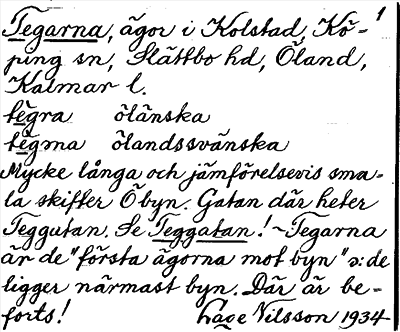 1
Tegarna, ägor i Kolstad, Kö-
ping sn, Slättbo hd, Öland,
Kalmar l.
tègra ölänska
tègma ölandssvänska
Mycke långa och jämförelsevis sma-
la skifter Ö byn. Gatan där heter
Teggutan. Se Teggatan! - Tegarna
är de "första ägorna mot byn" ɔ: de
ligger närmast byn. Där är be-
forts! Lage Nilsson 1934